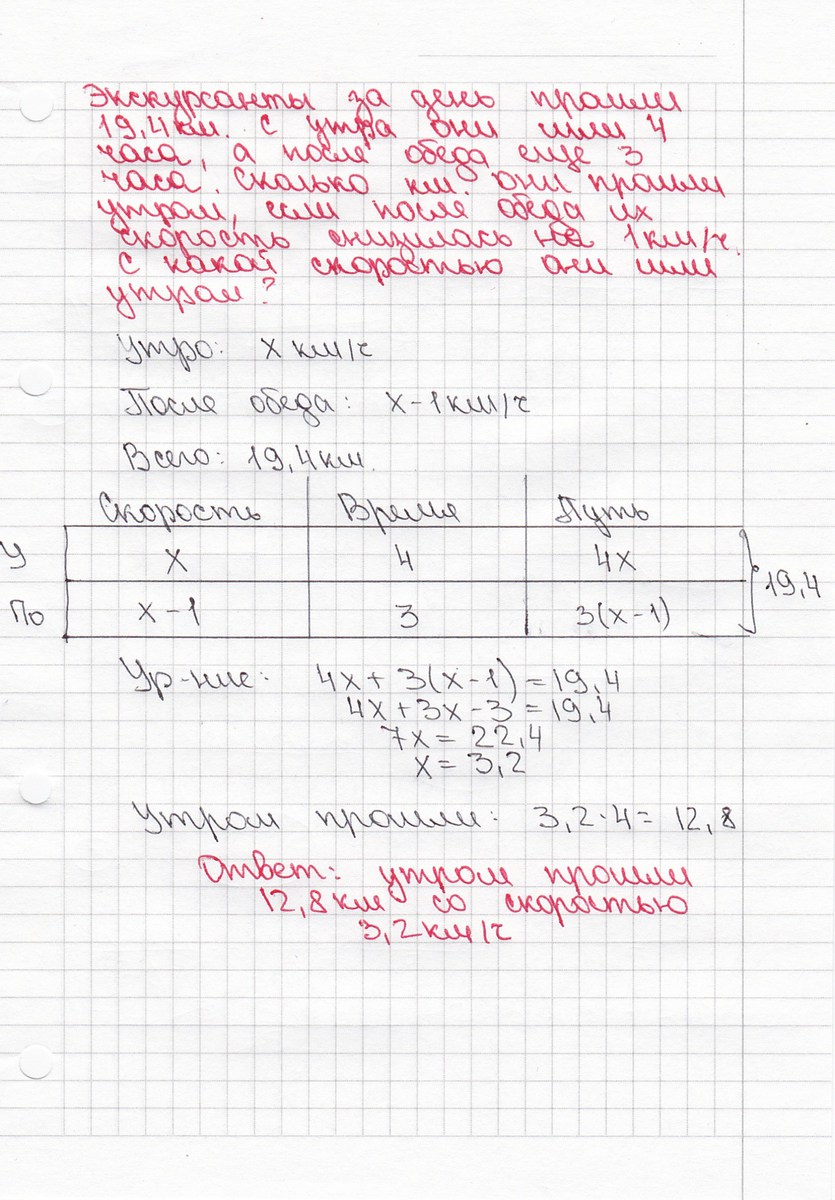 Экскурсанты за день прошли
19,4 км. С утра они шли 4
часа, а после обеда еще 3
часа. Сколько км. они прошли
утром, если после обеда их
скорость снизилась на 1 км/ч.
С какой скоростью они шли
утром?
Утро: x км/ч
После обеда: x-1 км/ч
Всего: 19,4 км.
Скорость Время Путь
У x 4 4x
По x-1 3 3(x-1) 19,4
Ур-ние: 4x + 3(x-1) = 19,4
4x + 3x - 3 = 19,4
7x = 22,4
x = 3,2
Утром прошли: 3,2·4 = 12,8
Ответ: утром прошли
12,8 км со скоростью
3,2 км/ч